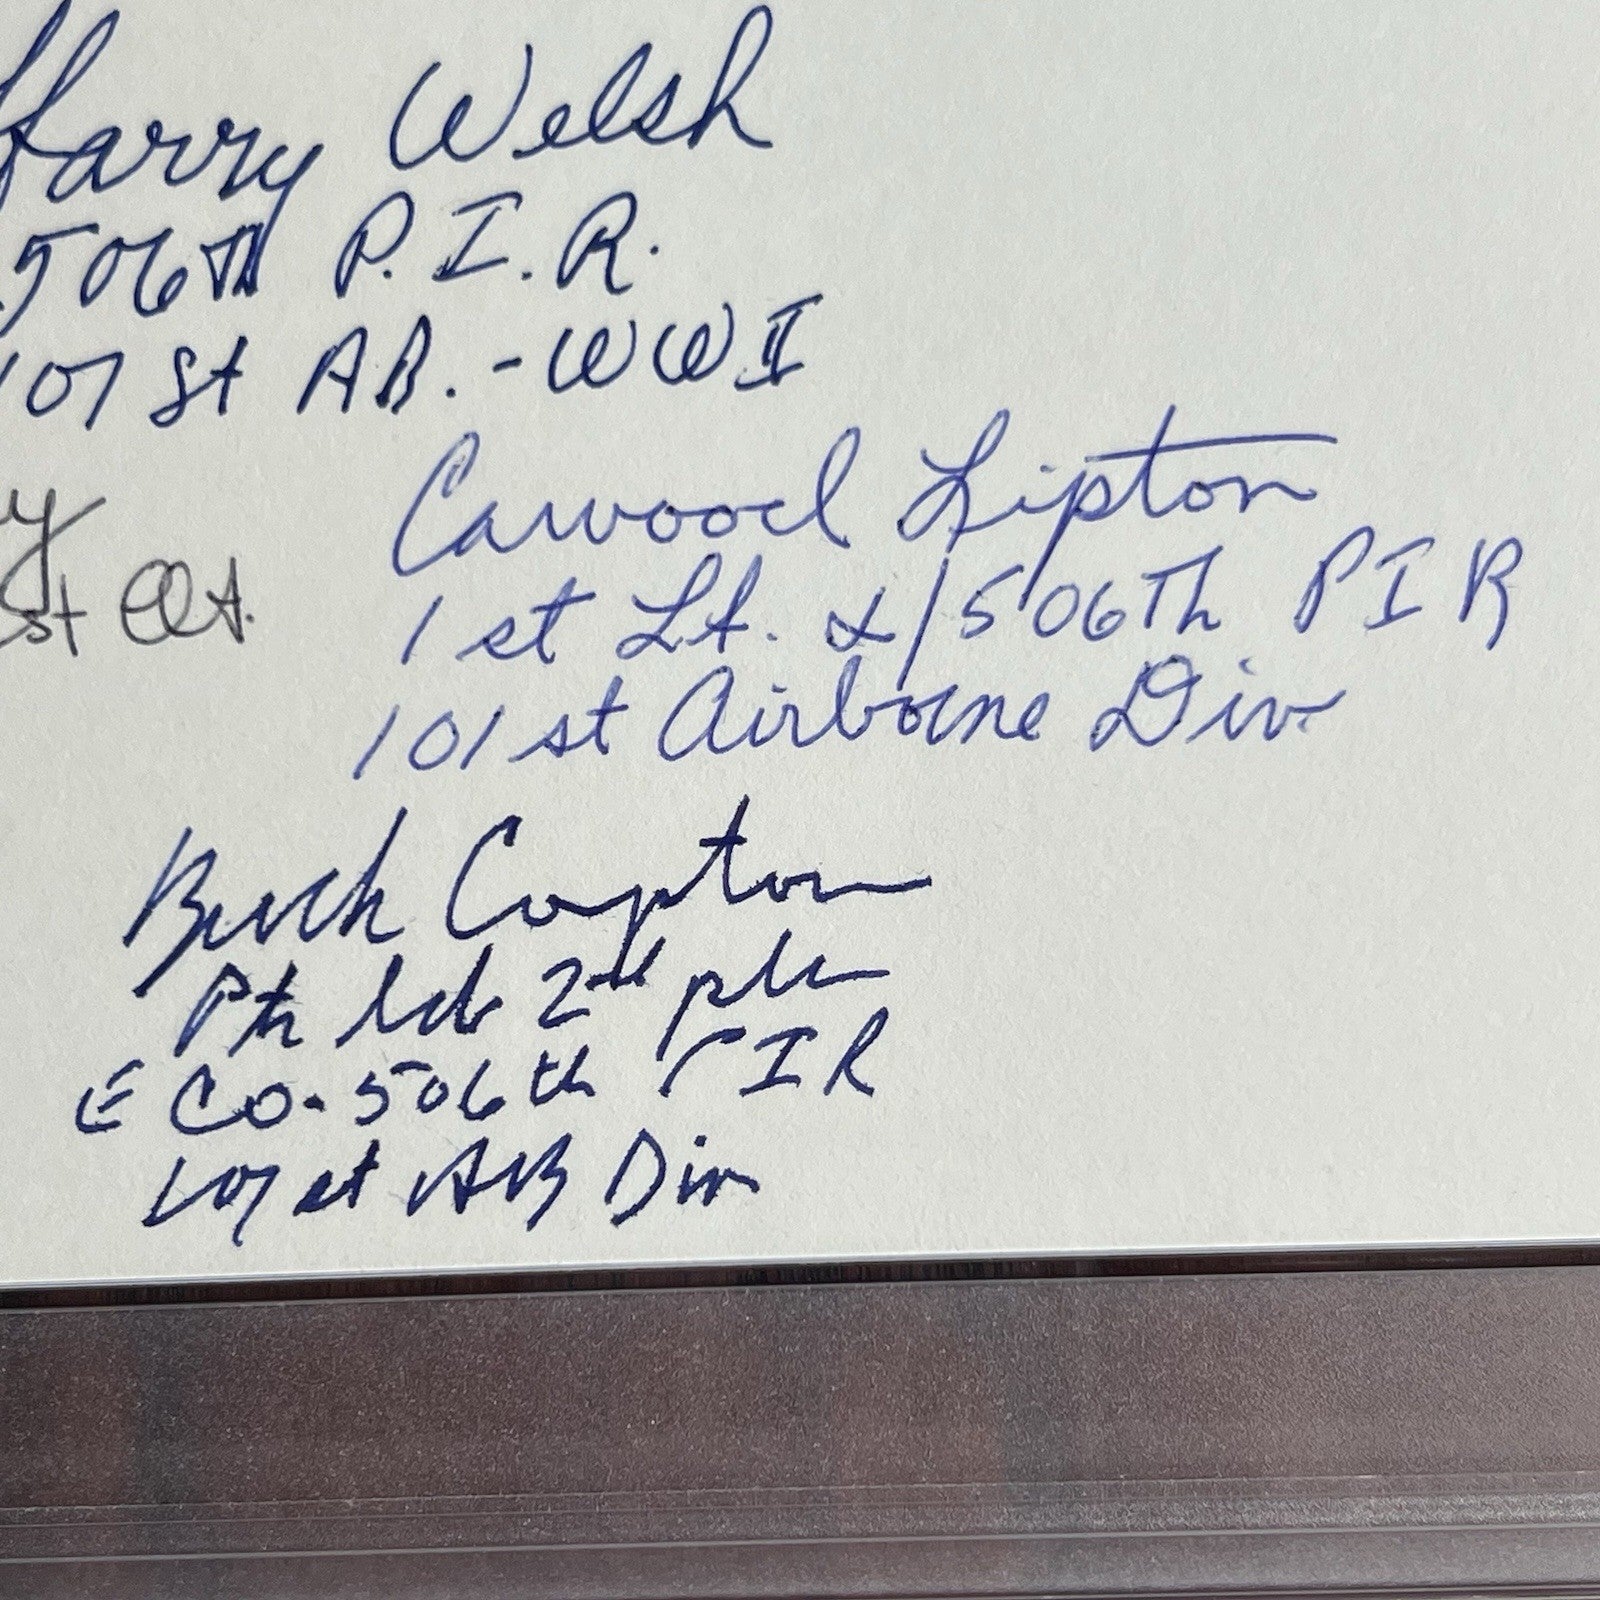 Harry Welsh
506th P.I.R.
101 St AB. - WWII
Carwood Lipton
1st Lt. 506th PIR
101st Airborne Div.
Buck Compton
Plt ldr 2nd pltn
E Co. 506th PIR
101st AB Div